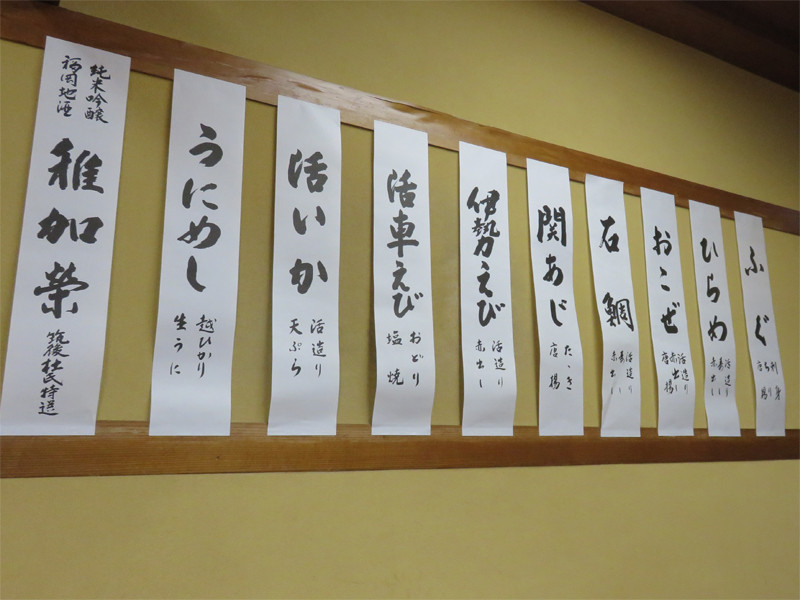 ふぐ
刺身
ちり
唐揚
ひらめ
活造り
赤出し
おこぜ
活造り
赤出し
唐揚
石鯛
活造り
赤出し
関あじ
たゝき
唐揚
伊勢えび
活造り
赤出し
活車えび
おどり
塩焼
活いか
活造り
天ぷら
うにめし
越ひかり
生うに
純米吟醸
福岡地酒
稚加榮
筑後杜氏特選